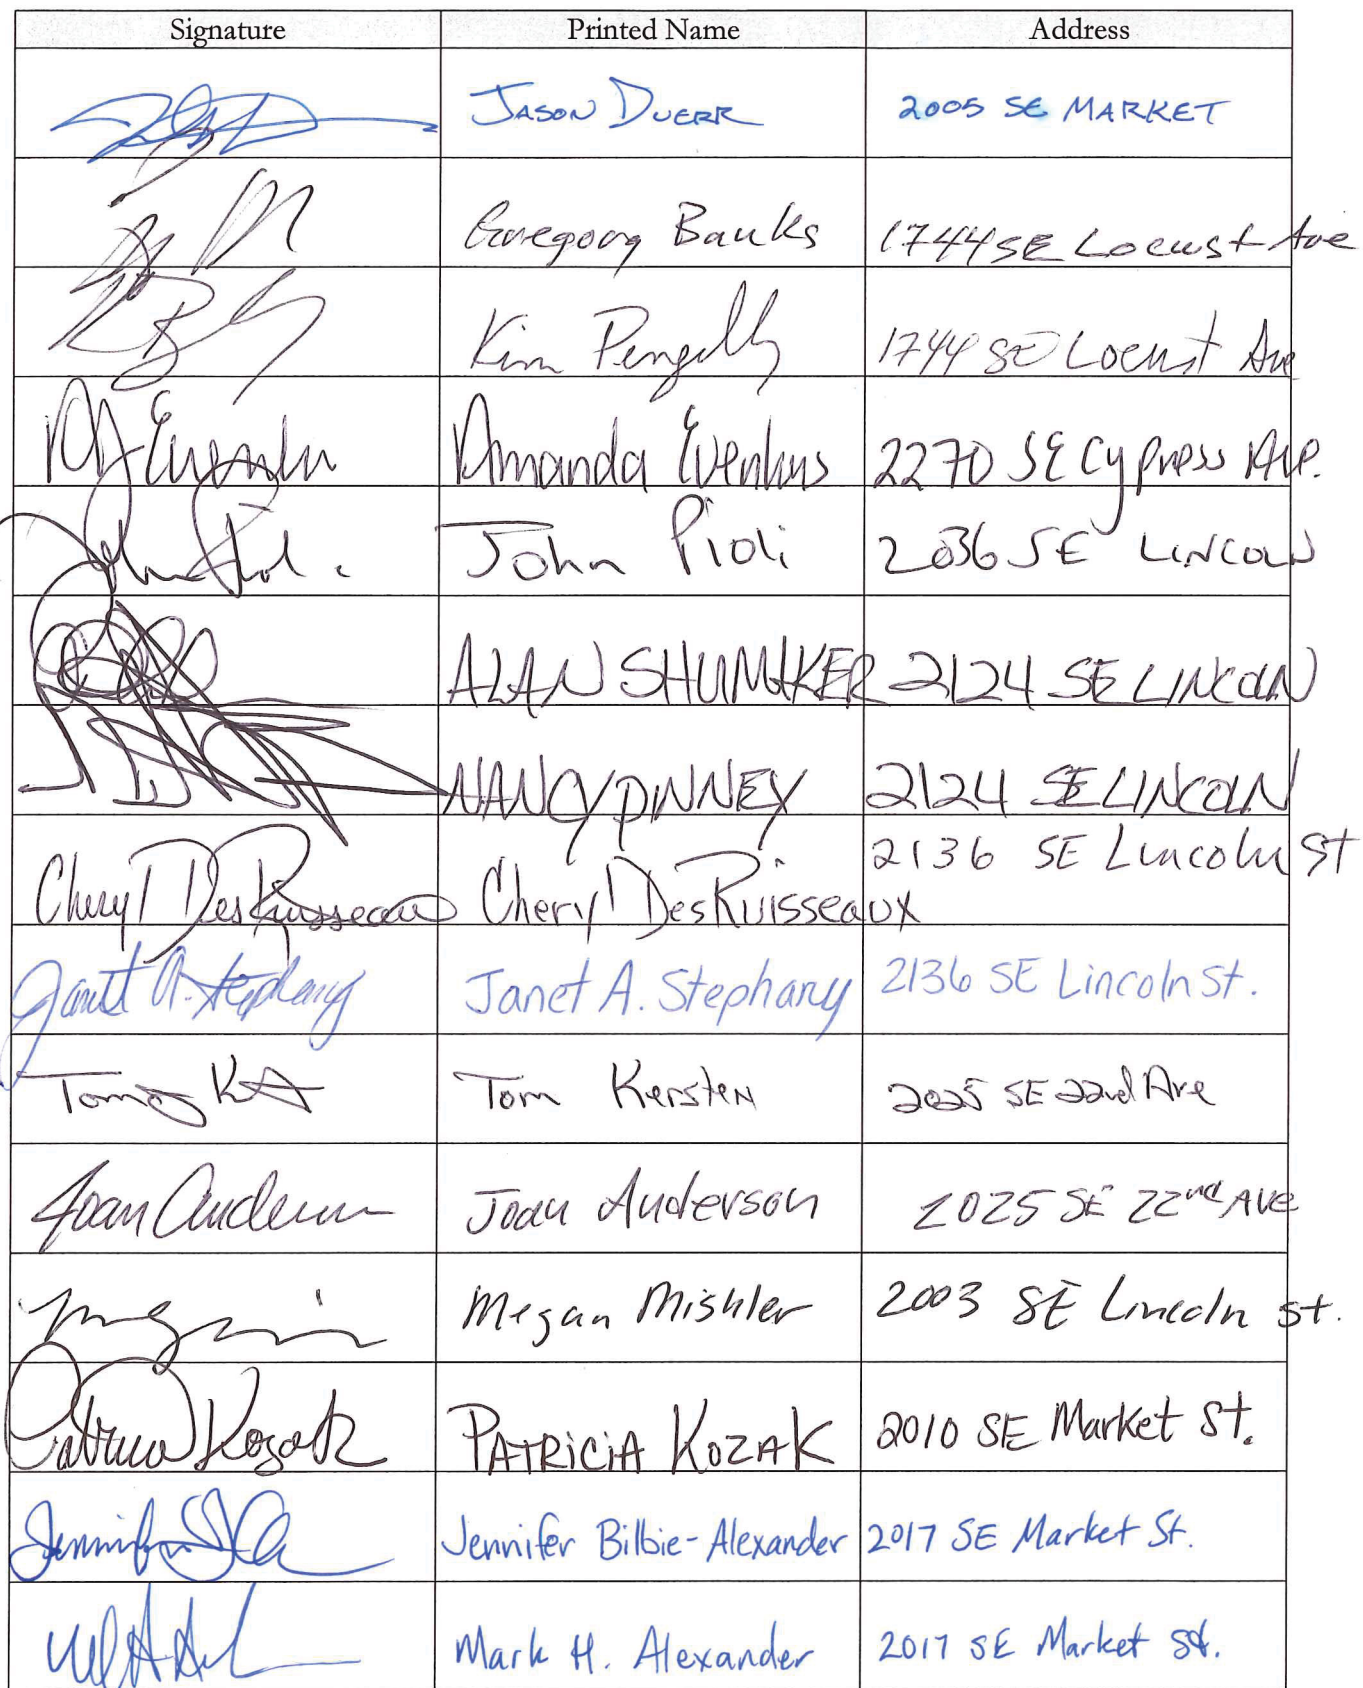 Signature Printed Name Address
JASON DUERR 2005 SE MARKET
Gregory Banks 1744 SE Locust Ave
Kim Pengelly 1744 SE Locust Ave
Amanda Evenhus 2270 SE Cypress Ave.
John Pioli 2036 SE LINCOLN
ALAN SHUMAKER 2124 SE LINCOLN
NANCY PINNEY 2124 SE LINCOLN
Cheryl DesRuisseaux Cheryl DesRuisseaux 2136 SE Lincoln St
Janet A. Stephany Janet A. Stephany 2136 SE Lincoln St.
Tom Kersten 2025 SE 22nd Ave
Joan Anderson Joan Anderson 2025 SE 22nd AVE
Megan Mishler 2003 SE Lincoln St.
Patricia Kozak PATRICIA KOZAK 2010 SE Market St.
Jennifer Jennifer Bilbie-Alexander 2017 SE Market St.
Mark H. Alexander 2017 SE Market St.